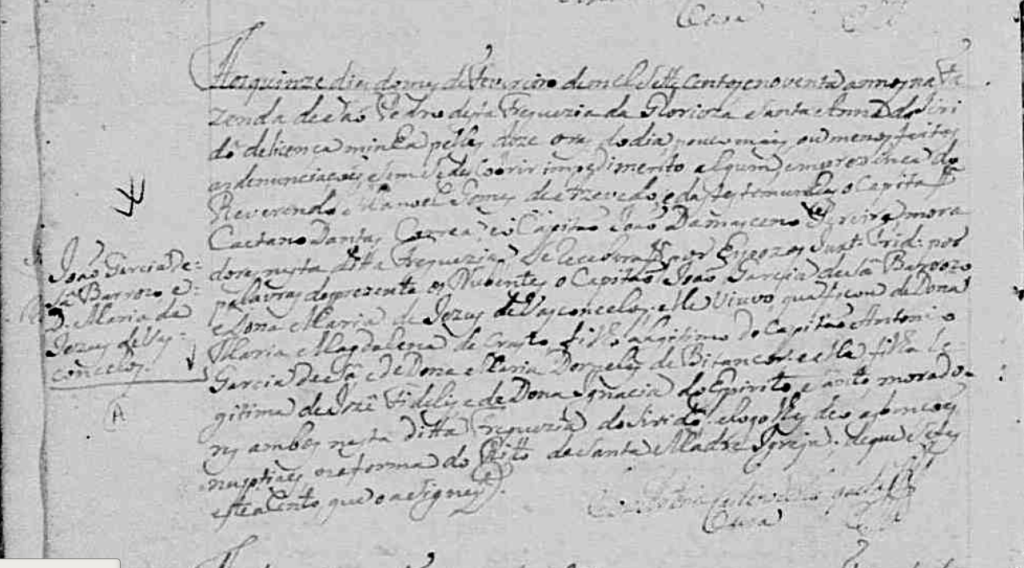 Cura
Aos quinze dias do mes de Fevereiro de mil Sette Centos e noventa annos na Fa
zenda de São Pedro desta Freguezia da Glorioza Santa Anna do Siri
dó de licença minha pellas doze oras do dia pouco mais ou menos feitas
as denunciaçoes e sem se descobrir impedimento algum em prezença do
Reverendo Manoel Gomes de Azevedo e das testemunhas o Capitão
Caetano Dantas Correa e o Capitão João Damasceno Pereira mora
dores nesta ditta Freguezia Se Receberão por Espozos Juxt. Trid: por
palavras de prezente os Nubentes o Capitão João Garcia de Sá Barrozo
e Dona Maria de Jezus de Vasconcelos, elle Viuvo, que ficou de Dona
Maria Magdalena de Crasto, filho Legitimo do Capitão Antonio
Garcia de Sá e de Dona Maria Dornelas de Bitancor. e ella filha le
gitima de Jozé Fidelis e de Dona Ignacia do Espirito Santo morado
res ambos nesta ditta Freguezia do Siridó. e logo lhes deo as bençoes
nupciaes na forma do Rito da Santa Madre Igreja; de que fiz
este acento, que o asigney.
Cura
João Garcia de
Sá Barrozo e
D. Maria de
Jezus de Vas
concelos.